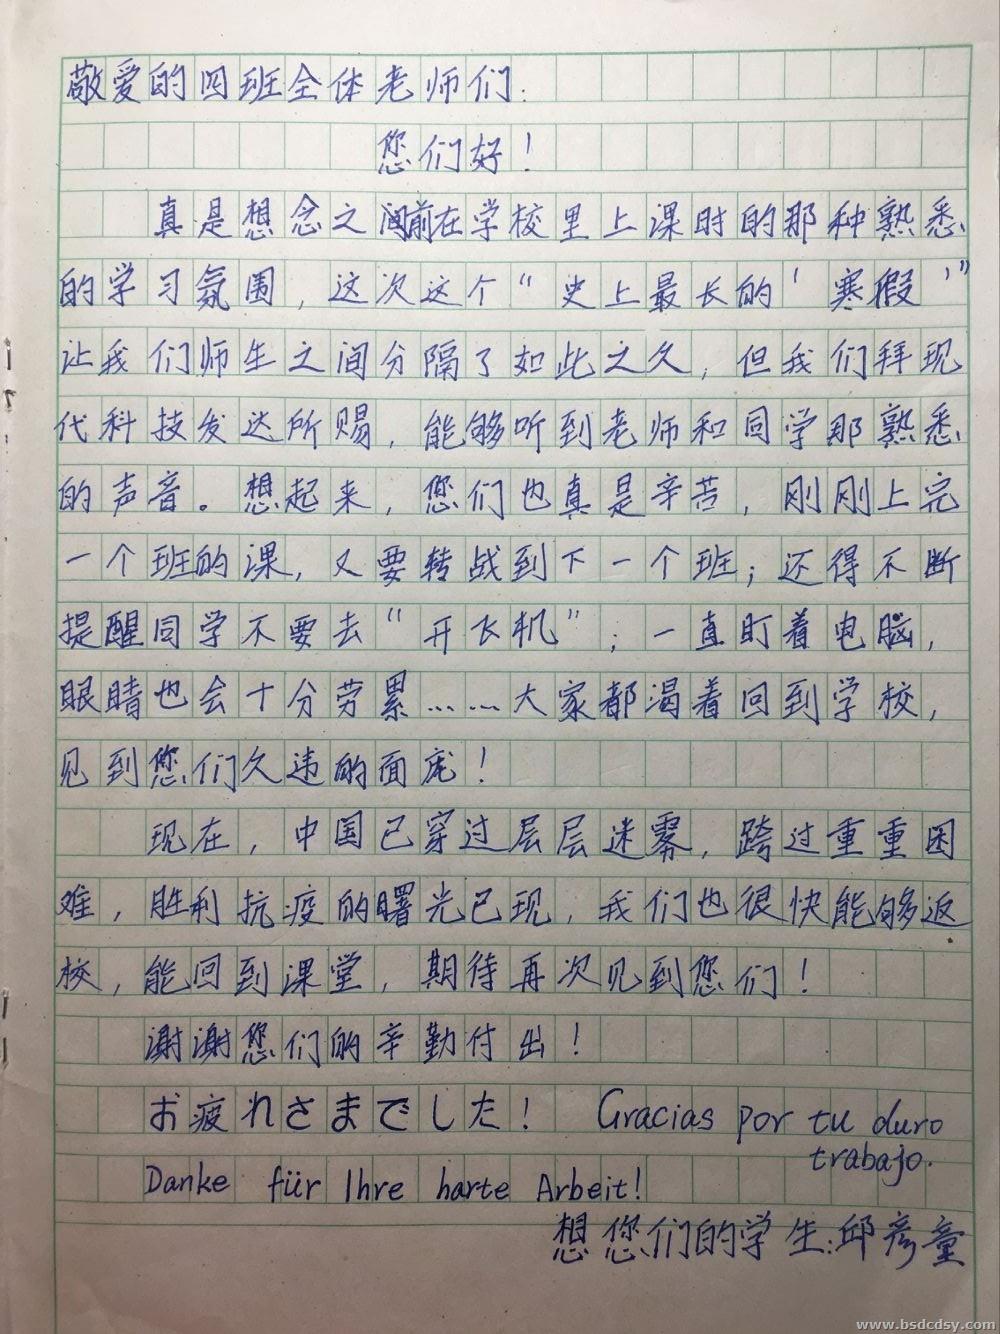 敬爱的四班全体老师们:
您们好!
真是想念之前在学校里上课时的那种熟悉
的学习氛围,这次这个“史上最长的‘寒假’”
让我们师生之间分隔了如此之久,但我们拜现
代科技发达所赐,能够听到老师和同学那熟悉
的声音。想起来,您们也真是辛苦,刚刚上完
一个班的课,又要转战到下一个班;还得不断
提醒同学不要去“开飞机”;一直盯着电脑,
眼睛也会十分劳累……大家都渴着回到学校,
见到您们久违的面庞!
现在,中国已穿过层层迷雾,跨过重重困
难,胜利抗疫的曙光已现,我们也很快能够返
校,能回到课堂,期待再次见到您们!
谢谢您们的辛勤付出!
お疲れさまでした! Gracias por tu duro
trabajo.
Danke für Ihre harte Arbeit!
想您们的学生:邱彦童
www.bsdcdsy.com